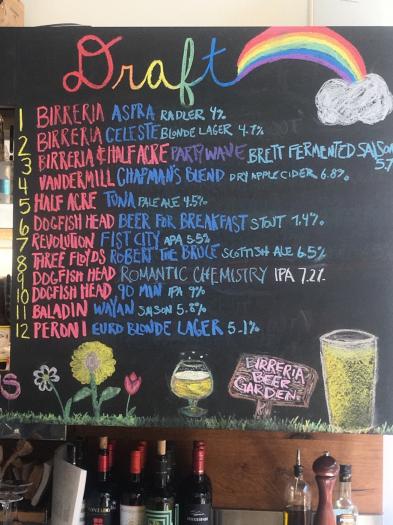 Draft
1 BIRRERIA ASPRA RADLER 4%
2 BIRRERIA CELESTE BLONDE LAGER 4.7%
3 BIRRERIA & HALF ACRE PARTY WAVE BRETT FERMENTED SAISON 5.7
4 VANDERMILL CHAPMAN'S BLEND DRY APPLE CIDER 6.8%
5 HALF ACRE TUNA PALE ALE 4.5%
6 DOGFISH HEAD BEER FOR BREAKFAST STOUT 7.4%
7 REVOLUTION FIST CITY APA 5.5%
8 THREE FLOYDS ROBERT THE BRUCE SCOTTISH ALE 6.5%
9 DOGFISH HEAD ROMANTIC CHEMISTRY IPA 7.2%
10 DOGFISH HEAD 90 MIN IPA 9%
11 BALADIN WAYAN SAISON 5.8%
12 PERONI EURO BLONDE LAGER 5.1%
BIRRERIA
BEER
GARDEN